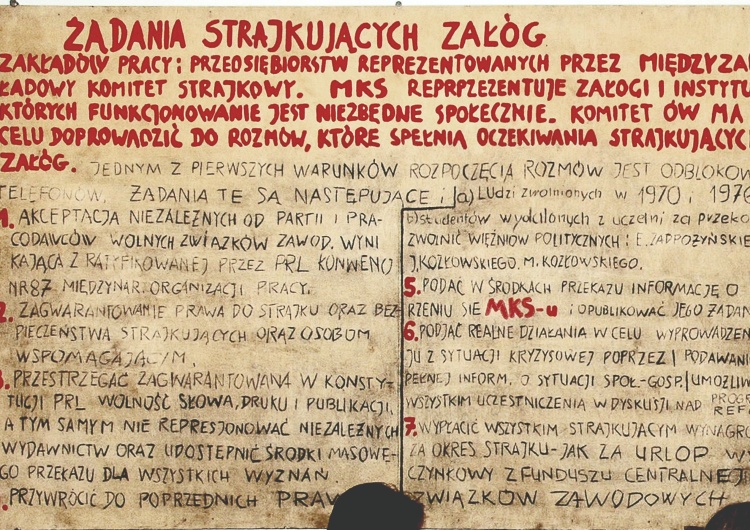 ŻĄDANIA STRAJKUJĄCYCH ZAŁÓG
ZAKŁADÓW PRACY i PRZEDSIĘBIORSTW REPREZENTOWANYCH PRZEZ MIĘDZYZA
ŁADOWY KOMITET STRAJKOWY. MKS REPRPZEZENTUJE ZAŁOGI I INSTYTU
KTÓRYCH FUNKCJONOWANIE JEST NIEZBĘDNE SPOŁECZNIE. KOMITET ÓW MA
CELU DOPROWADZIĆ DO ROZMÓW, KTÓRE SPEŁNIĄ OCZEKIWANIA STRAJKUJĄCYC
ZAŁÓG. JEDNYM Z PIERWSZYCH WARUNKÓW ROZPOCZĘCIA ROZMÓW JEST ODBLOKOW
TELEFONÓW. ŻĄDANIA TE SĄ NASTĘPUJĄCE:
1. AKCEPTACJA NIEZALEŻNYCH OD PARTII I PRA-
CODAWCÓW WOLNYCH ZWIĄZKÓW ZAWOD. WYNI
KAJĄCA Z RATYFIKOWANEJ PRZEZ PRL KONWENCJ
NR87 MIĘDZYNAR. ORGANIZACJI PRACY.
2. ZAGWARANTOWANIE PRAWA DO STRAJKU ORAZ BEZ-
PIECZEŃSTWA STRAJKUJĄCYCH ORAZ OSOBOM
WSPOMAGAJĄCYM.
3. PRZESTRZEGAĆ ZAGWARANTOWANĄ W KONSTY-
TUCJI PRL WOLNOŚĆ SŁOWA, DRUKU I PUBLIKACJI,
A TYM SAMYM NIE REPRESJONOWAĆ NIEZALEŻNYCH
WYDAWNICTW ORAZ UDOSTĘPNIĆ ŚRODKI MASOWE-
GO PRZEKAZU DLA WSZYSTKICH WYZNAŃ.
. PRZYWRÓCIĆ DO POPRZEDNICH PRAW
a) LUdzi zwolnionych w 1970 i 1976
b) studentów wydalonych z uczelni za przeko
ZWOLNIĆ WIĘŹNIÓW POLITYCZNYCH: E. ZADROŻYŃSKIE
J. KOZŁOWSKIEGO. M. KOZŁOWSKIEGO.
5. PODAĆ W ŚRODKACH PRZEKAZU INFORMACJĘ O
RZENIU SIĘ MKS-u i OPUBLIKOWAĆ JEGO ŻĄDAN
6. PODJĄĆ REALNE DZIAŁANIA W CELU WYPROWADZEN
JU Z SYTUACJI KRYZYSOWEJ POPRZEZ PODAWANI
PEŁNEJ INFORM. O SYTUACJI SPOŁ-GOSP. UMOŻLIW
WSZYSTKIM UCZESTNICZENIA W DYSKUSJI NAD PROGR
REF
7. WYPŁACIĆ WSZYSTKIM STRAJKUJĄCYM WYNAGRO
ZA OKRES STRAJKU-JAK ZA URLOP WY
CZYNKOWY Z FUNDUSZU CENTRALNEJ
ZWIĄZKÓW ZAWODOWYCH